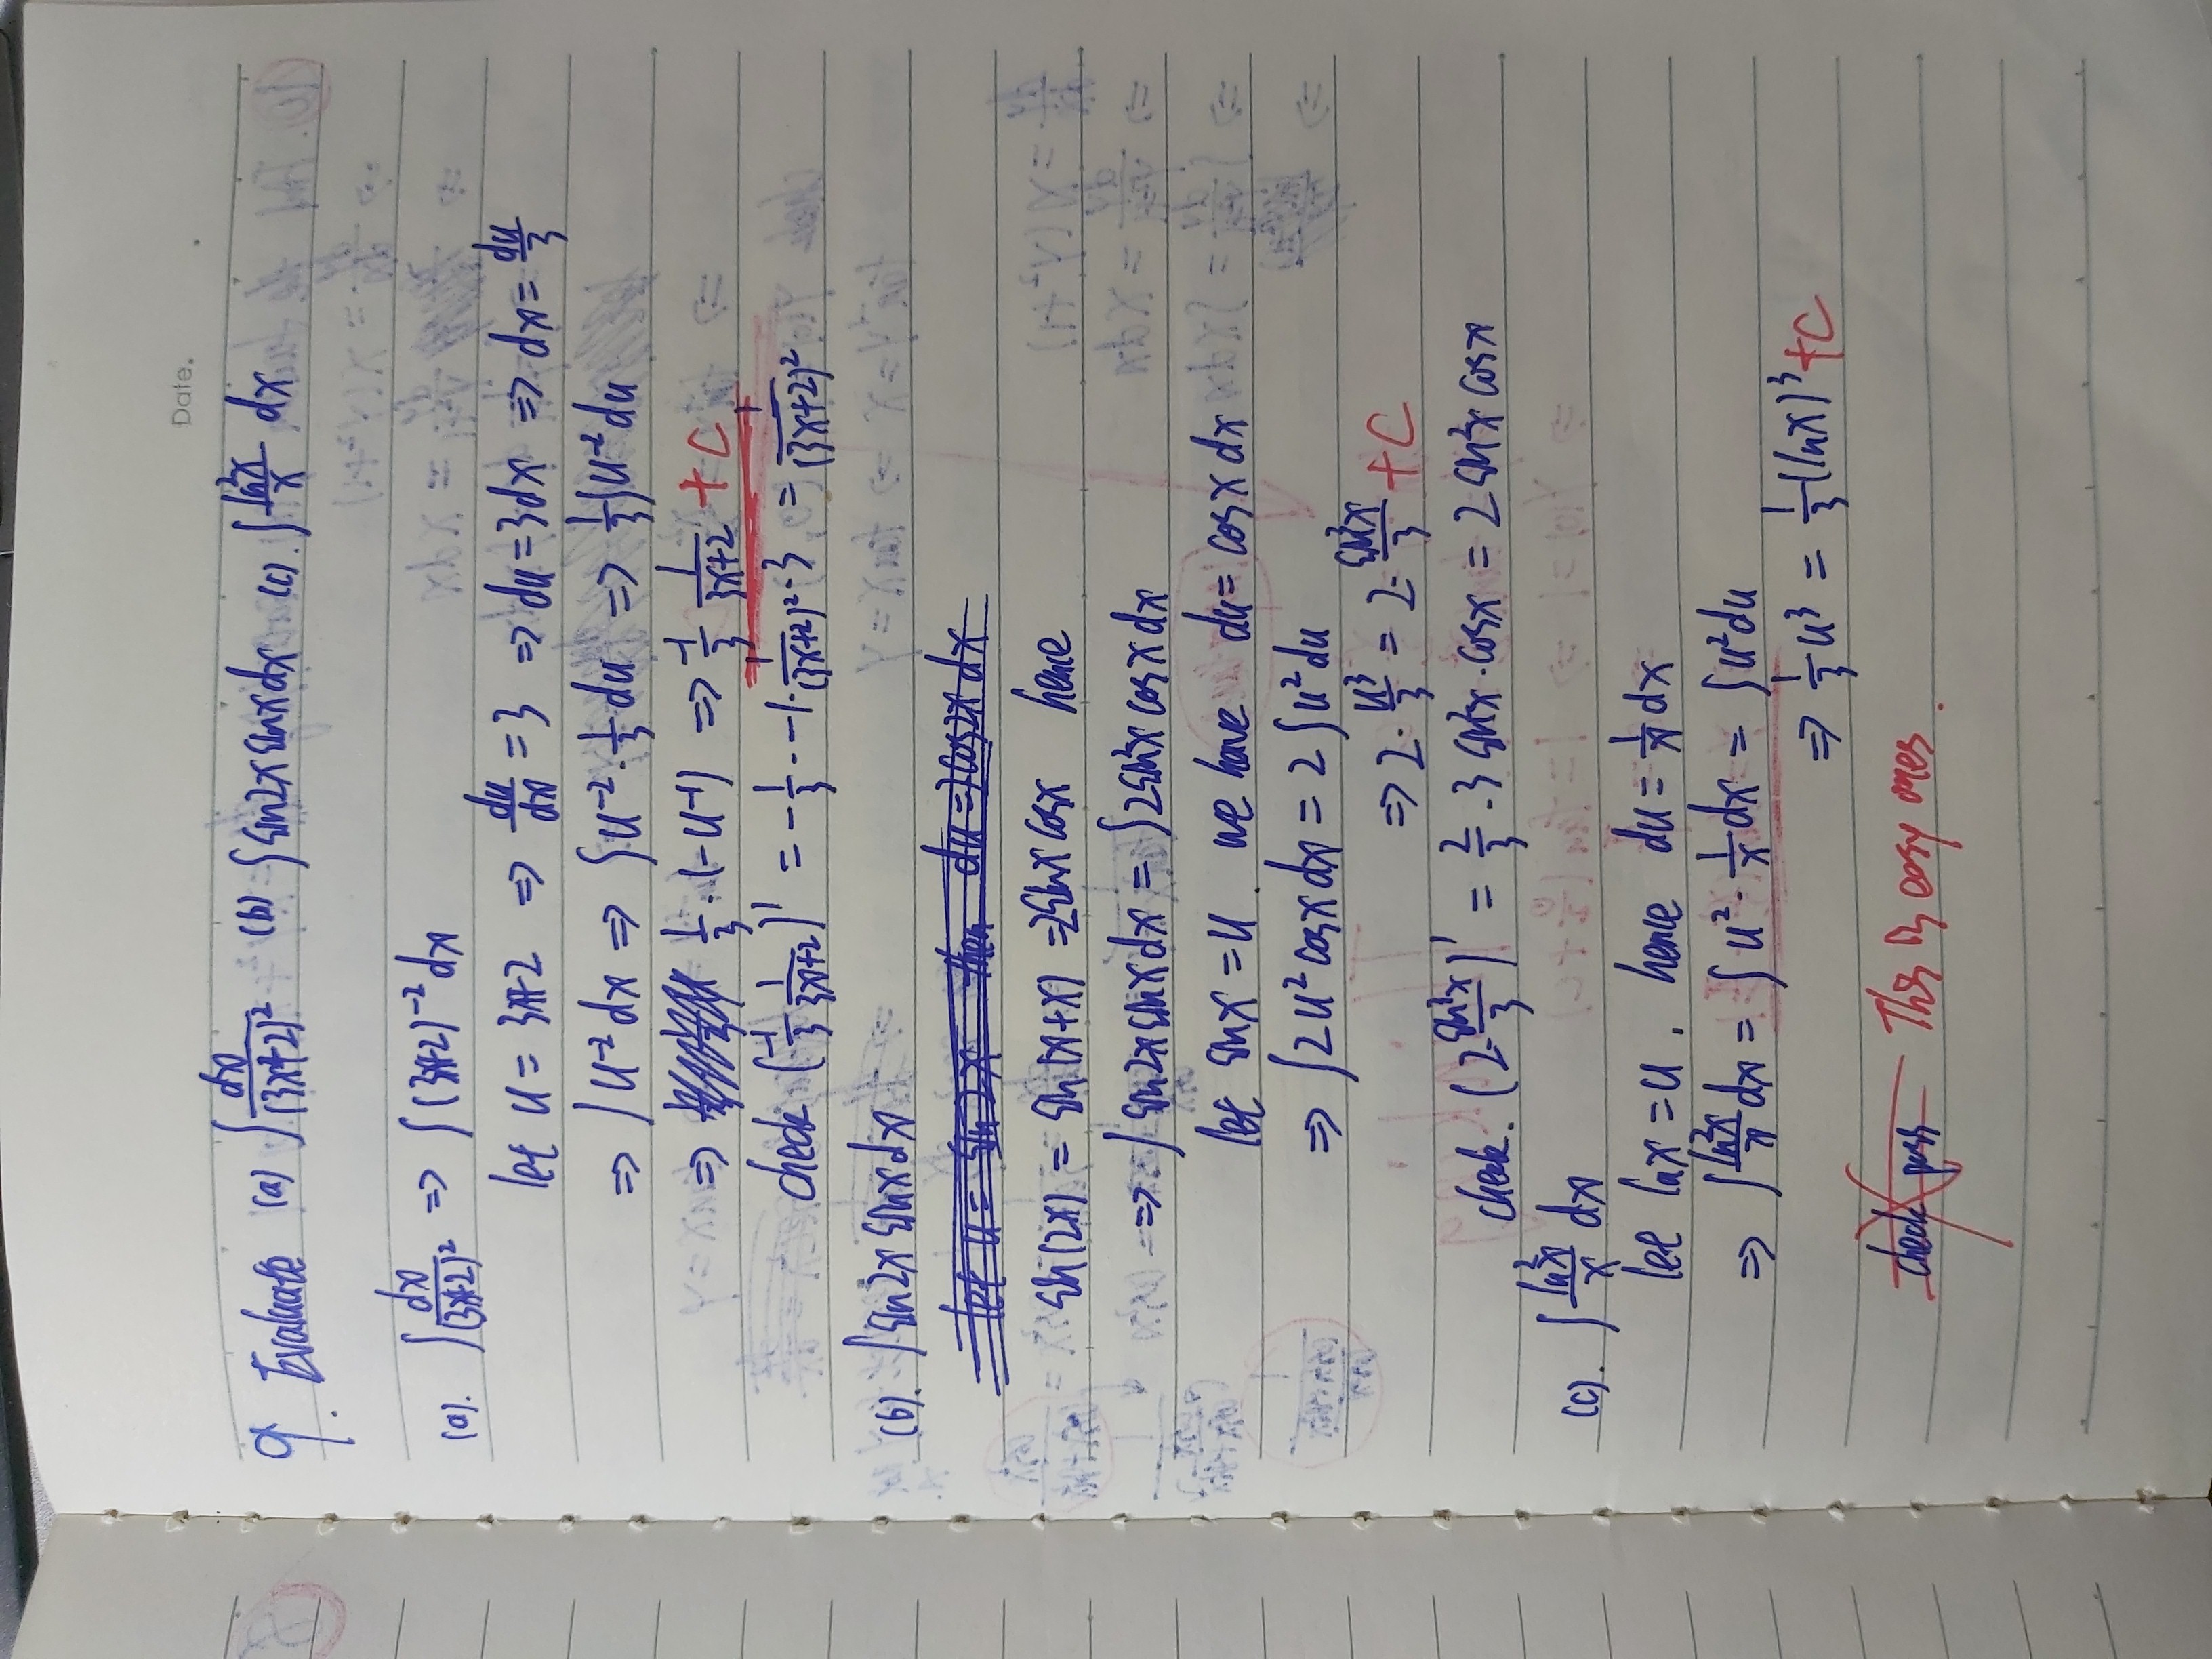 Date.
9. Evaluate (a) ∫ dx/(3x+2)² (b) ∫ sin2x sinx dx (c). ∫ ln²x/x dx
(a). ∫ dx/(3x+2)² => ∫ (3x+2)⁻² dx
let u = 3x+2 => du/dx = 3 => du = 3dx => dx = du/3
=> ∫ u⁻² dx => ∫ u⁻² · 1/3 du => 1/3 ∫ u⁻² du
=> 1/3 · (-u⁻¹) => -1/3 1/(3x+2) + C
check (-1/3 1/(3x+2))' = -1/3 · -1 · 1/(3x+2)² · 3 = 1/(3x+2)²
(b). ∫ sin2x sinx dx
let u = sin2x then du = 2cos2x dx
sin(2x) = sin(x+x) = 2sinx cosx hence
=> ∫ sin2x sinx dx = ∫ 2sin²x cosx dx
let sinx = u. we have du = cosx dx
=> ∫ 2u² cosx dx = 2 ∫ u² du
=> 2 · u³/3 = 2 · sin³x/3 + C
check. (2 · sin³x/3)' = 2/3 · 3 sin²x · cosx = 2 sin²x cosx
(c). ∫ ln²x/x dx
let lnx = u. hence du = 1/x dx
=> ∫ ln²x/x dx = ∫ u² · 1/x dx = ∫ u² du
=> 1/3 u³ = 1/3 (lnx)³ + C
check pass This is easy ones.